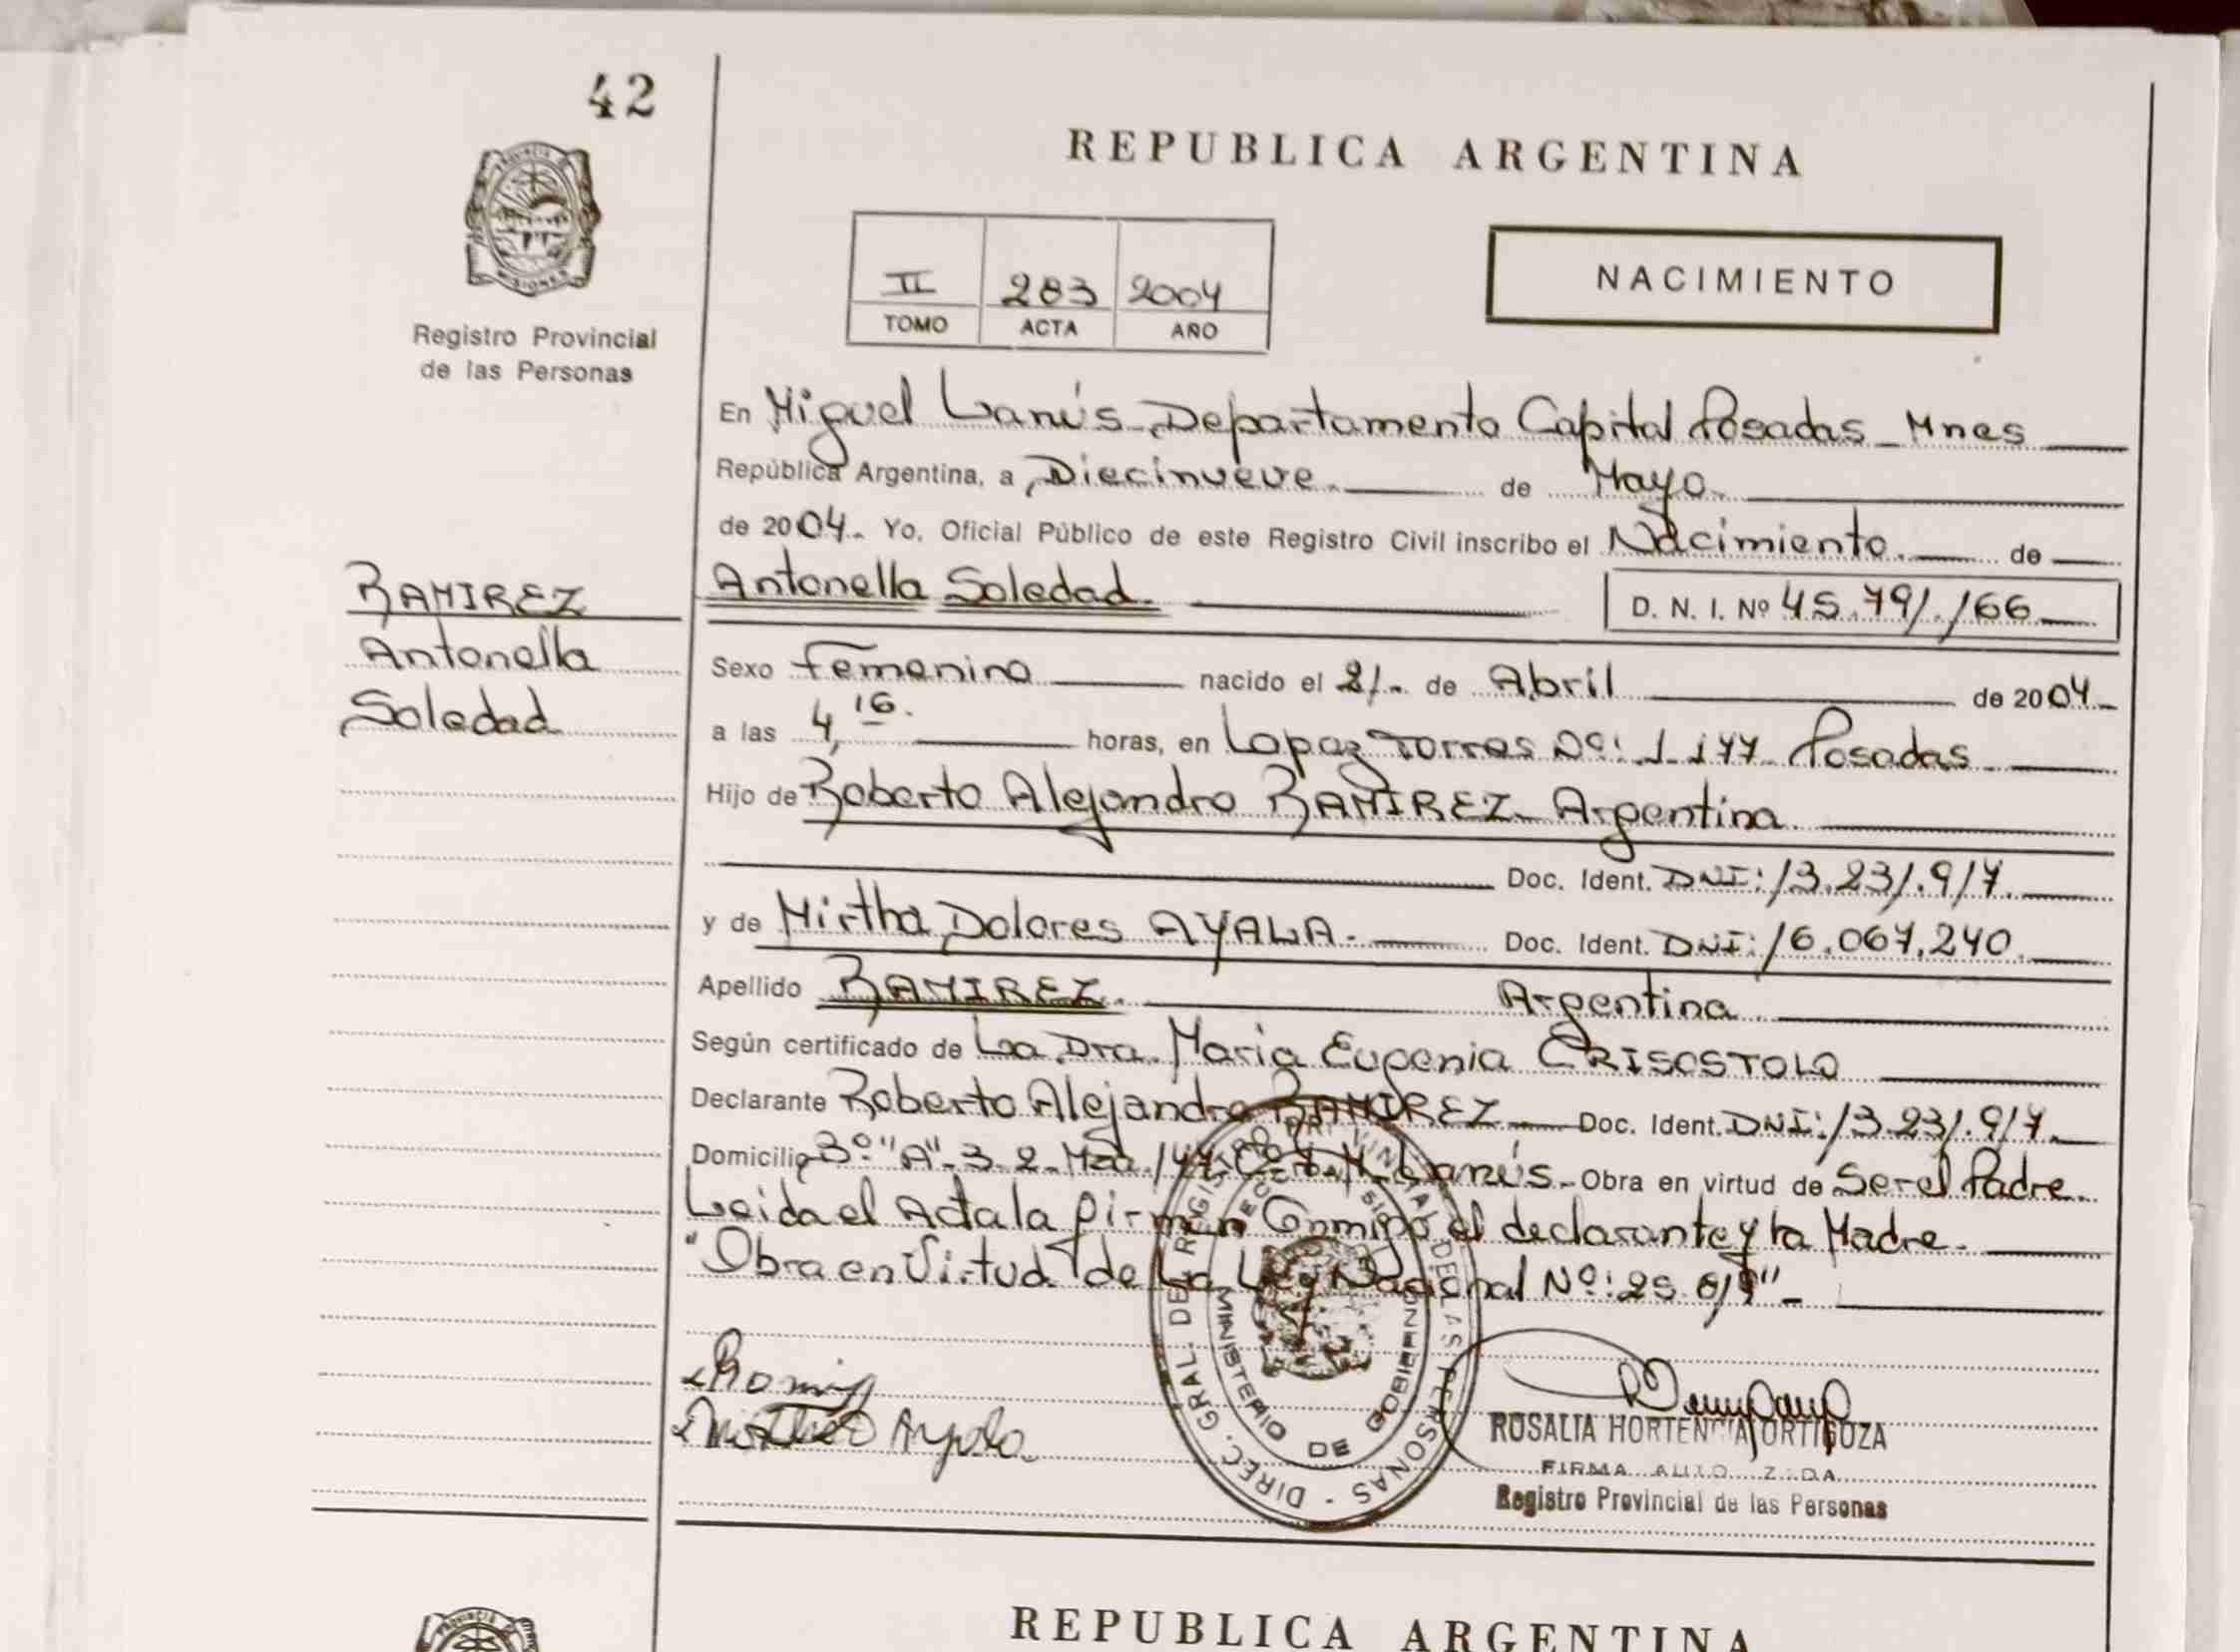 42
REPUBLICA ARGENTINA
PROVINCIA DE
MISIONES
Registro Provincial
de las Personas
II 283 2004
TOMO ACTA AÑO
NACIMIENTO
En Miguel Lanús Departamento Capital Posadas - Mnes
República Argentina, a Diecinueve. de Mayo.
de 2004. Yo, Oficial Público de este Registro Civil inscribo el Nacimiento. de
RAMIREZ
Antonella
Soledad
Antonella Soledad.
D. N. I. Nº 45.791.166
Sexo Femenino nacido el 21. de Abril de 2004.
a las 4,16. horas, en Lopez Torres Nº: 1.177 Posadas
Hijo de Roberto Alejandro RAMIREZ Argentina.
Doc. Ident. DNI: 13.231.917.
y de Mirtha Dolores AYALA. Doc. Ident. DNI: 16.067.240.
Apellido RAMIREZ. Argentina.
Según certificado de La Dra. Maria Eugenia CRISOSTOLO
Declarante Roberto Alejandro RAMIREZ Doc. Ident. DNI: 13.231.917.
Domicilio Bº "A" 3.2 Mza. 147 Lanús. Obra en virtud de Ser el Padre.
Leida el Acta la firman Conmigo el declarante y la Madre.
"Obra en Virtud de La Ley Nacional Nº: 25.819"
Mirtha Ayala.
DIREC. GRAL. DEL REGISTRO PROVINCIAL DE LAS PERSONAS
MINISTERIO DE GOBIERNO
ROSALIA HORTENCIA ORTIGOZA
FIRMA AUTORIZADA
Registro Provincial de las Personas
REPUBLICA ARGENTINA
PROVINCIA